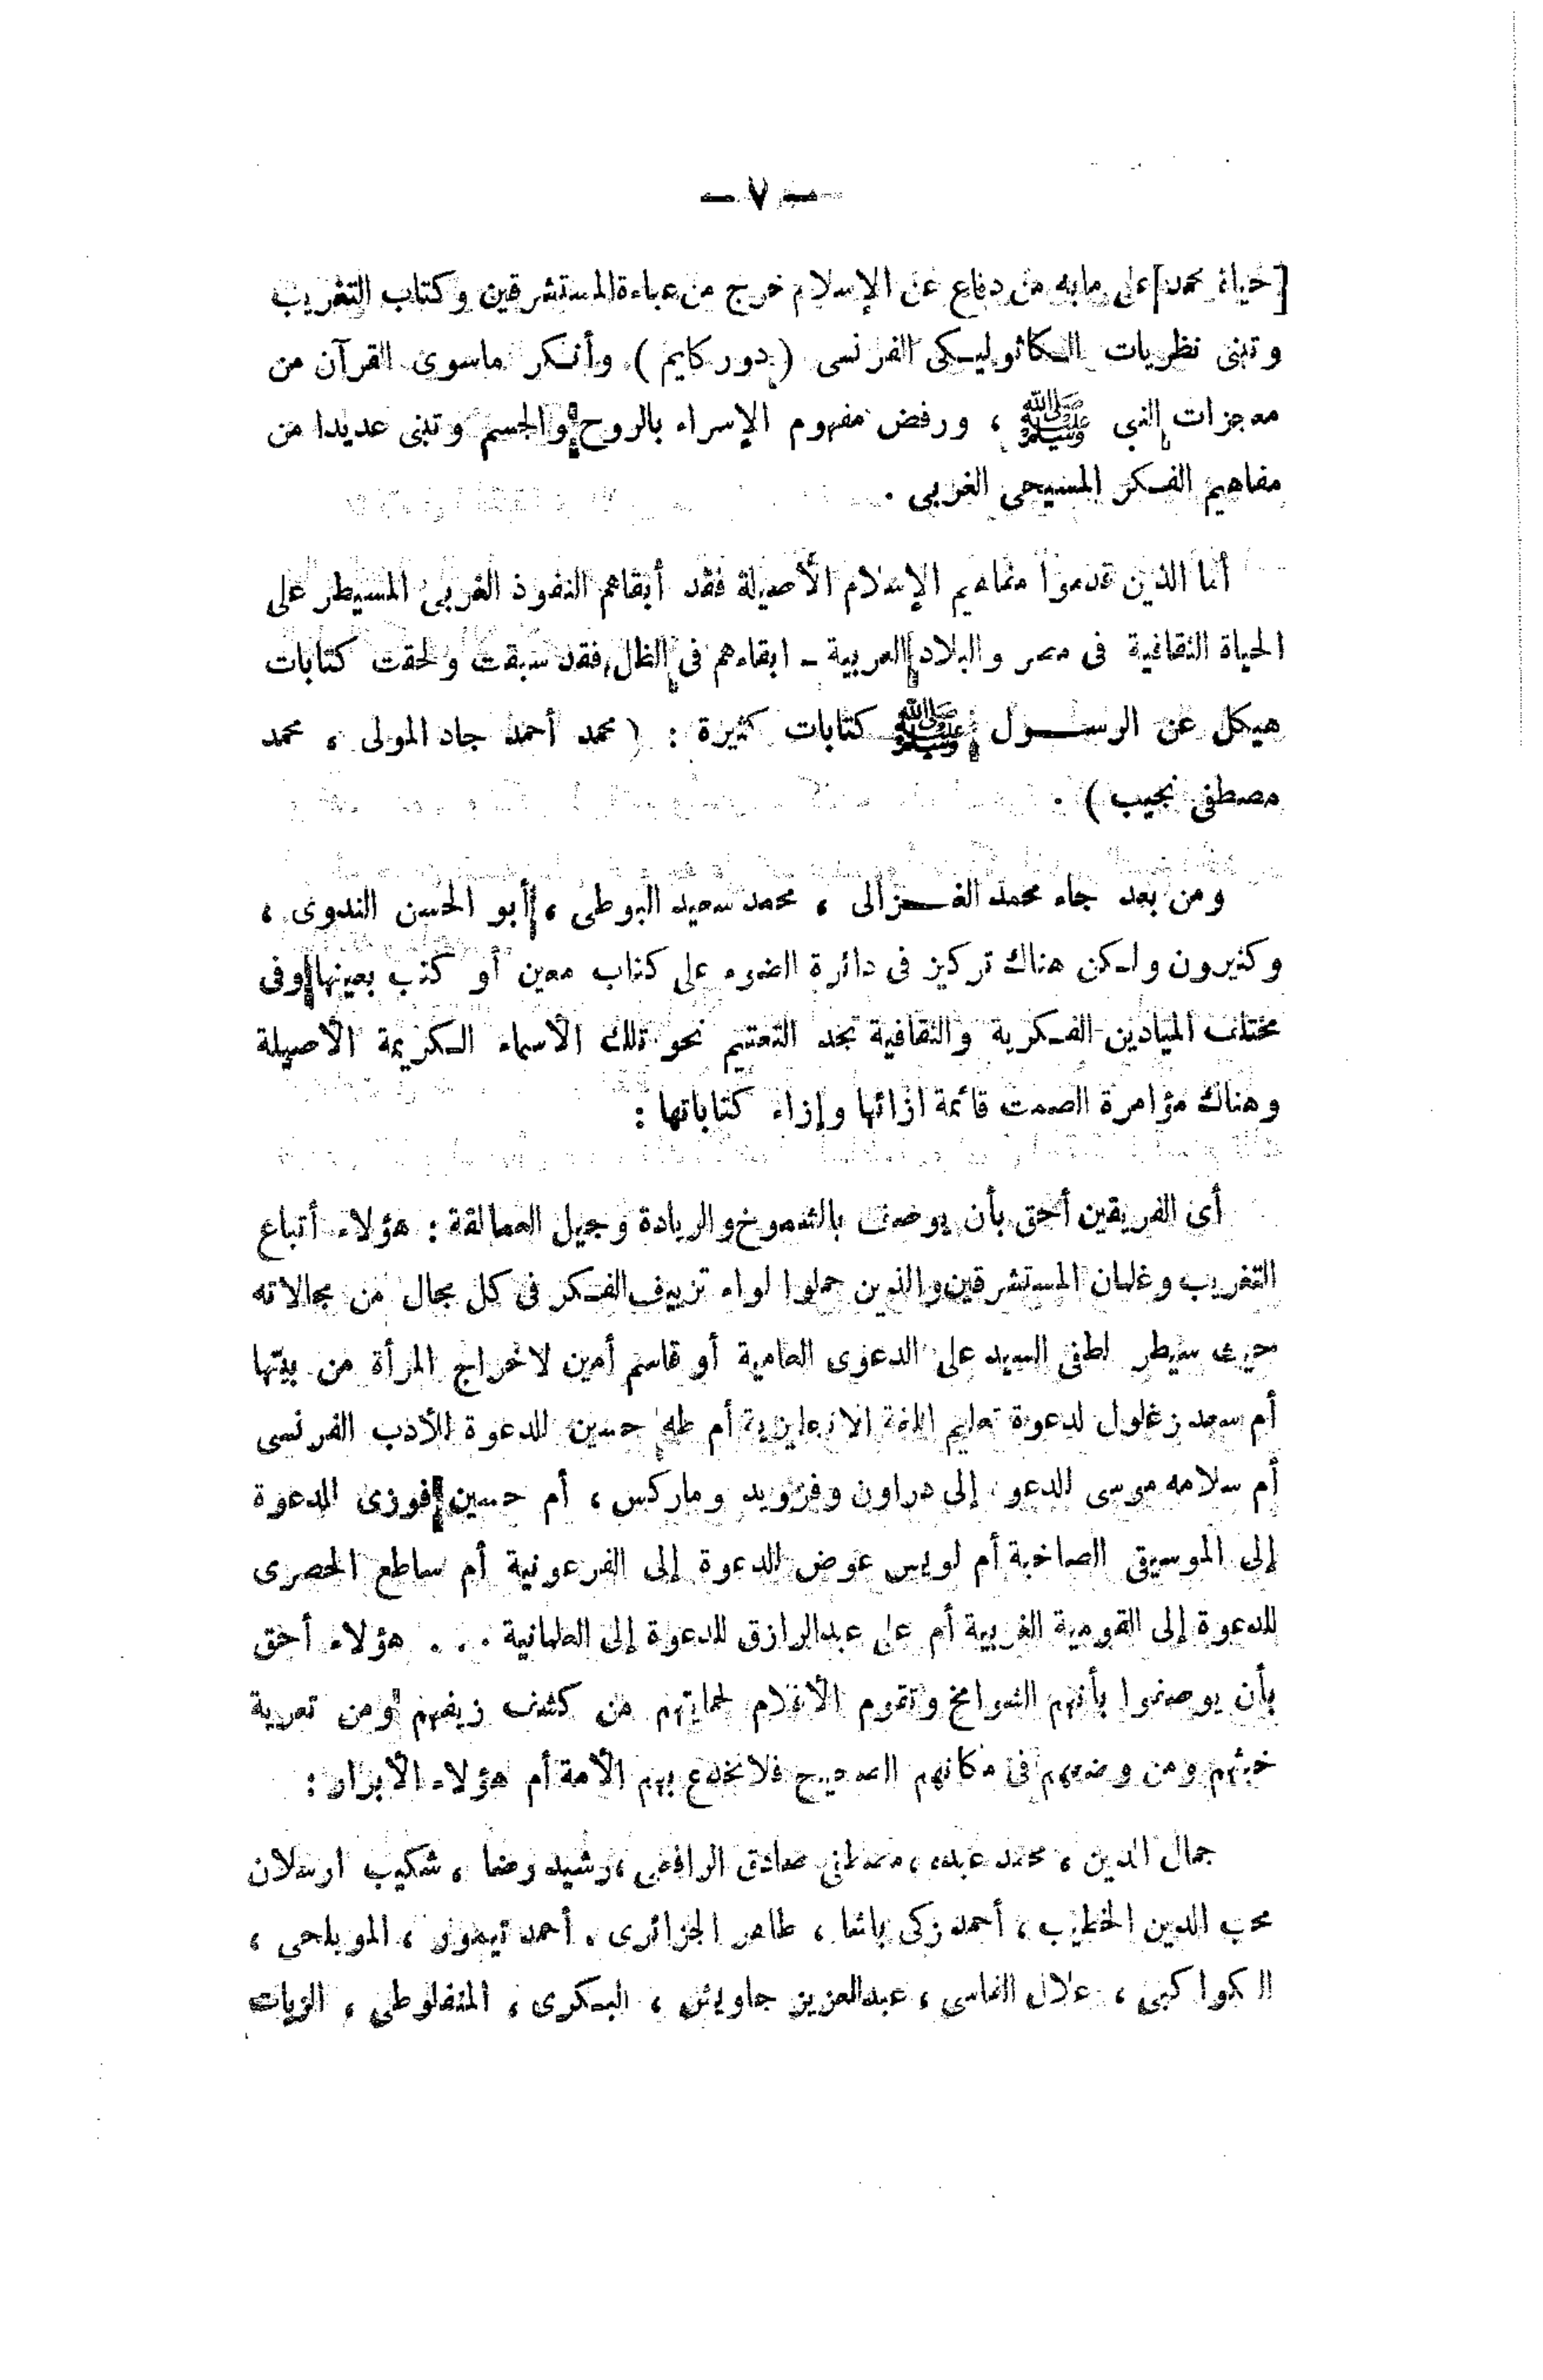 — ٧ —
[حياة محمد] على مابه من دفاع عن الإسلام خرج من عباءة المستشرقين وكتاب التغريب
وتبنى نظريات الكاثوليكى الفرنسى (دور كايم) وأنكر ماسوى القرآن من
معجزات النبى ﷺ ، ورفض مفهوم الإسراء بالروح والجسم وتبنى عديدا من
مفاهيم الفكر المسيحى الغربى .
أما الذين قدموا مفاهيم الإسلام الأصيلة فقد أبقاهم النفوذ الغربى المسيطر على
الحياة الثقافية فى مصر والبلاد العربية - ابقاءهم فى الظل، فقد سبقت ولحقت كتابات
هيكل عن الرسول ﷺ كتابات كثيرة : (محمد أحمد جاد المولى ، محمد
مصطفى نجيب) .
ومن بعد جاء محمد الغزالى ، محمد سعيد البوطى ، أبو الحسن الندوى ،
وكثيرون ولكن هناك تركيز فى دائرة الضوء على كتاب معين أو كتب بعينها وفى
مختلف الميادين الفكرية والثقافية تجد التعتيم نحو تلك الأسماء الكريمة الأصيلة
وهناك مؤامرة الصمت قائمة ازائها وإزاء كتاباتها :
أى الفريقين أحق بأن يوصف بالشموخ والريادة وجيل العمالقة : هؤلاء أتباع
التغريب وغلمان المستشرقين والذين حملوا لواء تزييف الفكر فى كل مجال من مجالاته
سيطر لطفى السيد على الدعوى العامية أو قاسم أمين لاخراج المرأة من بيتها
أم سعد زغلول لدعوة تعليم اللغة الانجليزية أم طه حسين للدعوة للأدب الفرنسى
أم سلامه موسى للدعو إلى دراون وفرويد وماركس ، أم حسين فوزى للدعوة
إلى الموسيقى الصاخبة أم لويس عوض للدعوة إلى الفرعونية أم ساطع الحصرى
للدعوة إلى القومية الغربية أم على عبدالرازق للدعوة إلى العلمانية . . . هؤلاء أحق
بأن يوصفوا بأنهم الشوامخ وتقوم الأقلام لحمايتهم من كشف زيفهم ومن تعرية
خبثهم ومن وضعهم فى مكانهم الصحيح فلا تخدع بهم الأمة أم هؤلاء الأبرار :
جمال الدين ، محمد عبده ، مصطفى صادق الرافعى ، رشيد رضا ، شكيب ارسلان
محب الدين الخطيب ، أحمد زكى باشا ، طاهر الجزائرى . أحمد تيمور ، المويلحى ،
الكواكبى ، علال الفاسى ، عبدالعزيز جاويش ، البكرى ، المنفلوطى ، الزيات